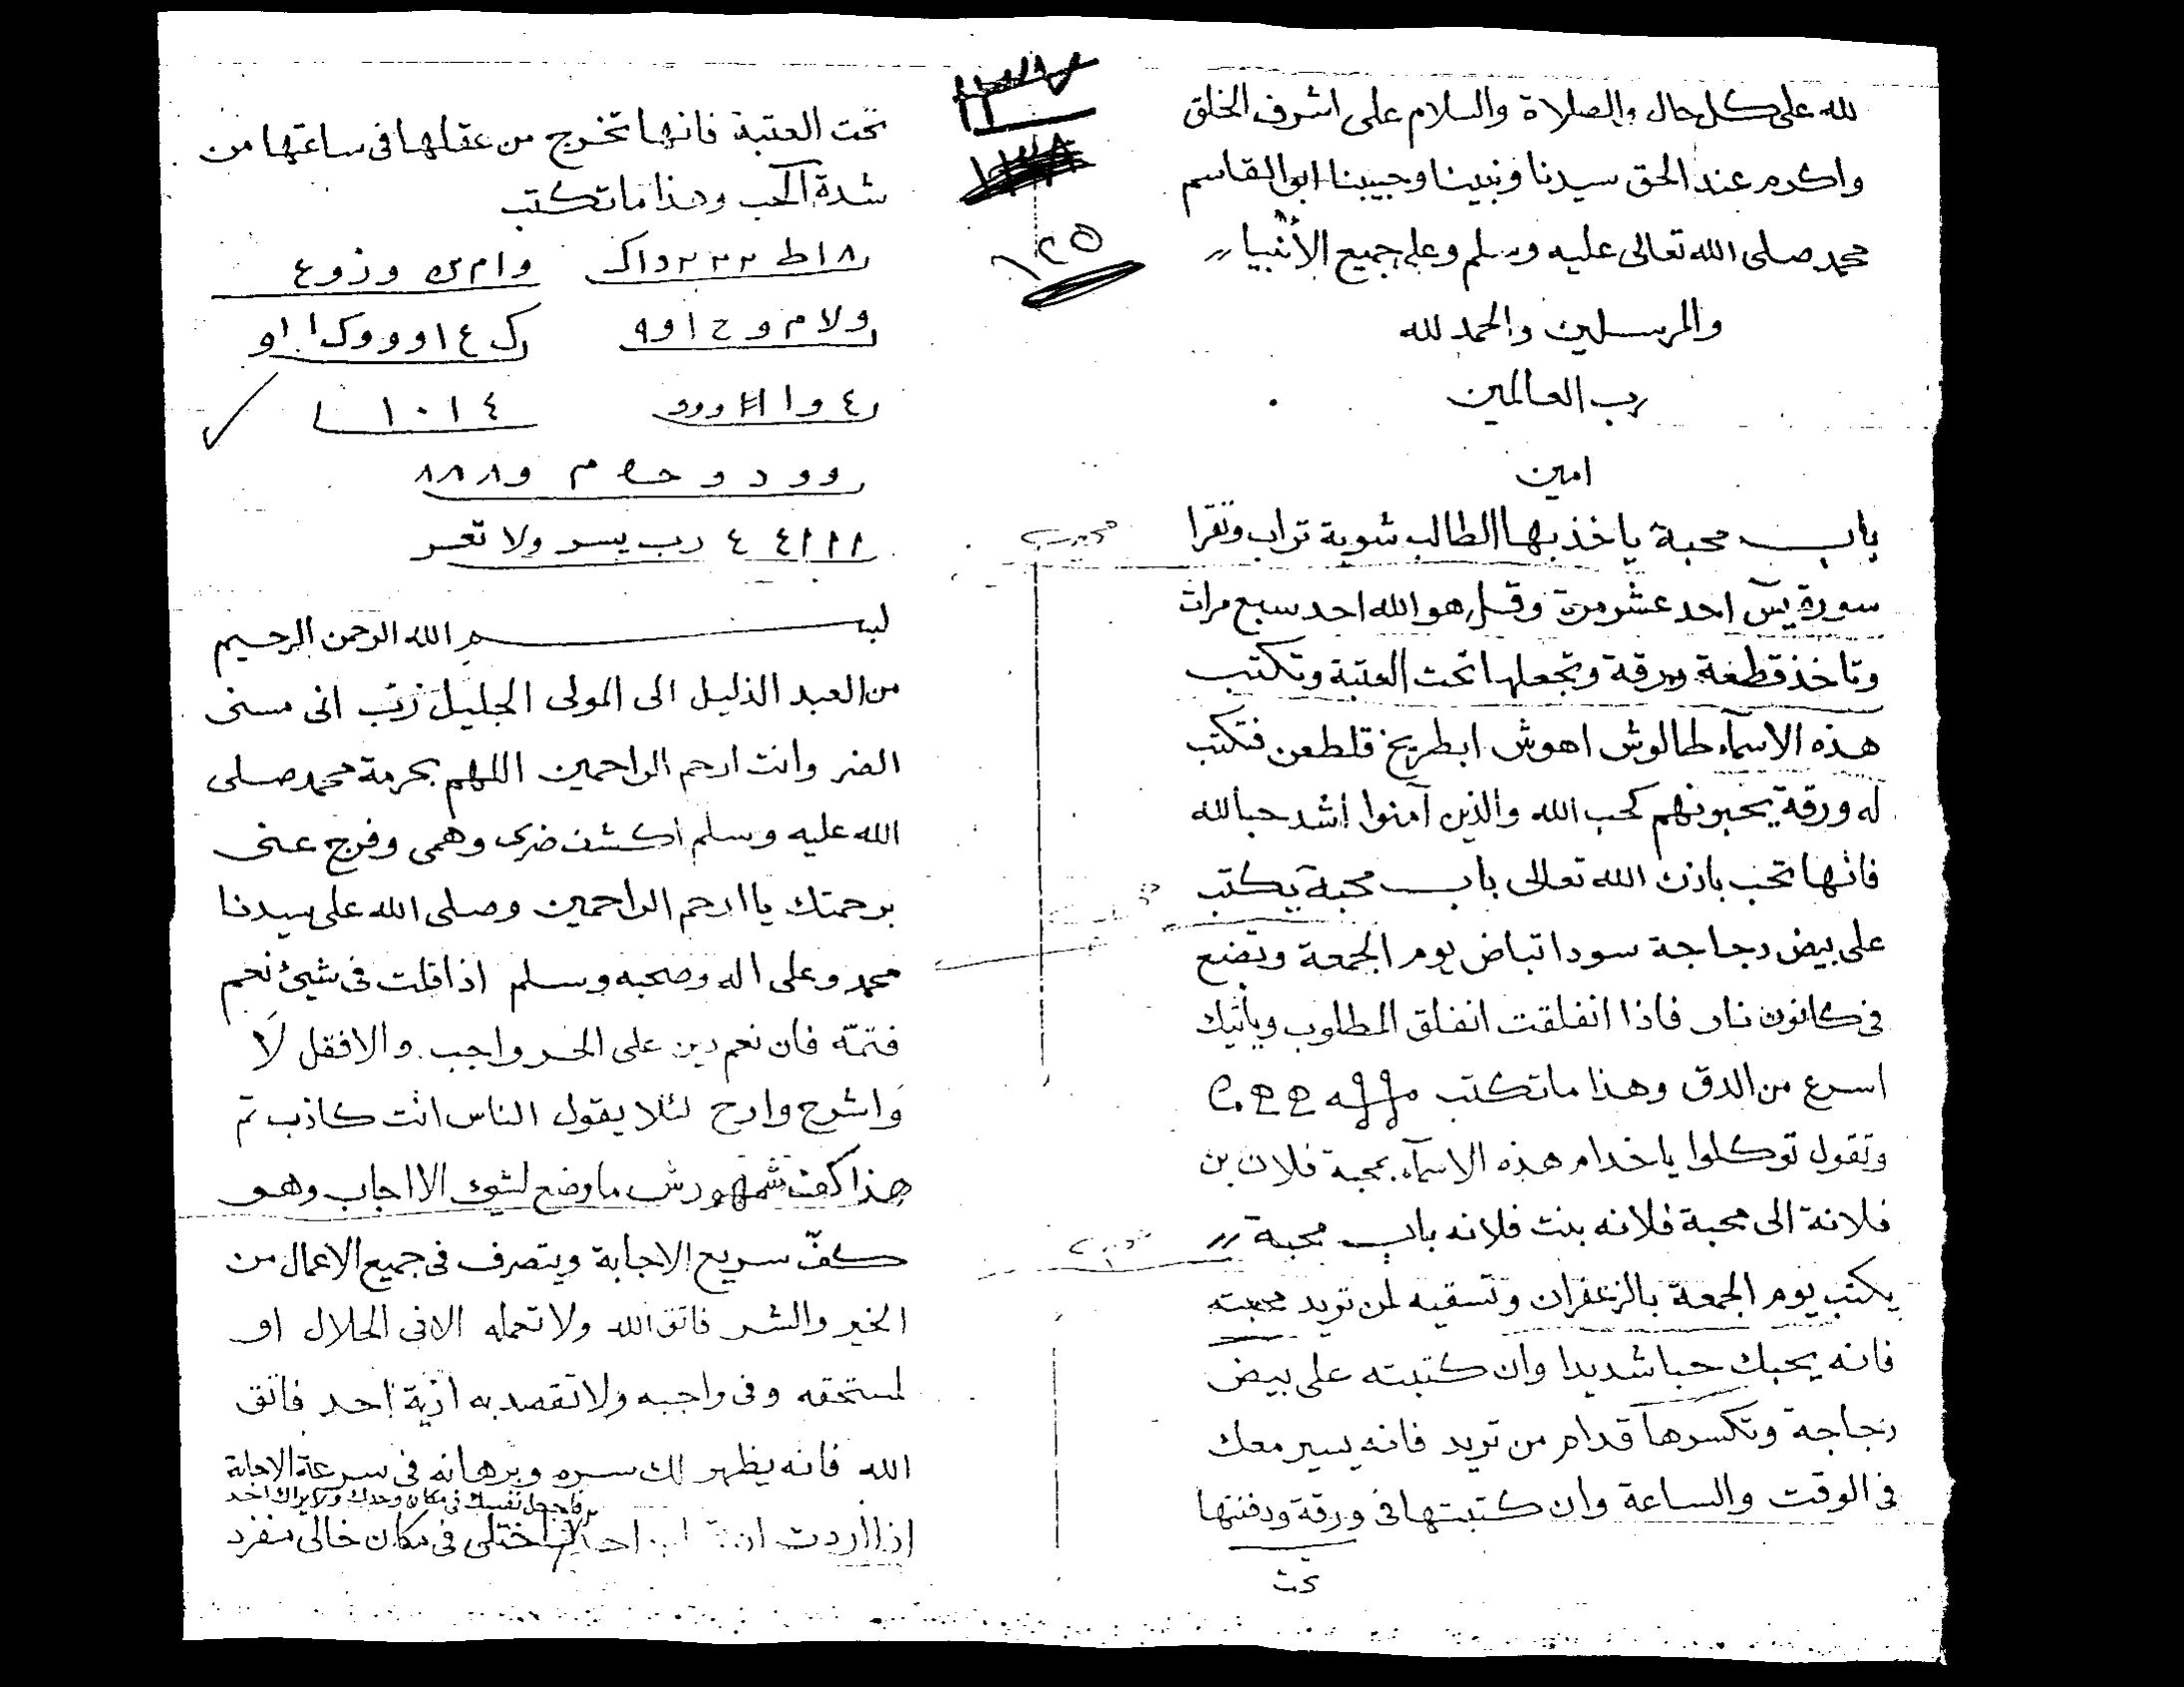 لله على كل حال والصلاة والسلام على اشرف الخلق
واكرم عند الحق سيدنا ونبينا وحبيبنا ابو القاسم
محمد صلى الله تعالى عليه وسلم وعلى جميع الأنبيا
والمرسلين والحمد لله
رب العالمين
امين
باب محبة ياخذ بها الطالب شوية تراب وتقرا
سورة يسٓ احد عشر مرة وقل هو الله احد سبع مرات
وتاخذ قطعة ورقة وتجعلها تحت العتبة وتكتب
هذه الاسمآء طالوش اهوش ابطريخ قلطعن فتكتب
له ورقة يحبونهم كحب الله والذين آمنوا اشد حبا لله
فانها تحب باذن الله تعالى باب محبة يكتب
على بيض دجاجة سودا تباض يوم الجمعة وتضع
فى كانون نار فاذا انفلقت انفلق المطلوب وياتيك
اسرع من الدق وهذا ما تكتب
وتقول توكلوا ياخدام هذه الاسمآء بمحبة فلان بن
فلانة الى محبة فلانه بنت فلانه باب محبة
يكتب يوم الجمعة بالزعفران وتسقيه لمن تريد محبته
فانه يحبك حبا شديدا وان كتبته على بيض
دجاجة وتكسرها قدام من تريد فانه يسير معك
فى الوقت والساعة وان كتبتها فى ورقة ودفنتها
تحت
١٢٥
تحت العتبة فانها تخرج من عقلها فى ساعتها من
شدة الحب وهذا ما تكتب
٨ ا ط ٢٢٢ د اك وام س وذوع
ولا م و ح ا و ٩ ك ع ا و و وك ا او
٤ و ا ٤ ١ ٠ ١
و و د و م و ٨٨٨
١١١ ٤ ٤ رب يسر ولا تعسر
بسم الله الرحمن الرحيم
من العبد الذليل الى المولى الجليل رب انى مسنى
الضر وانت ارحم الراحمين اللهم بحرمة محمد صلى
الله عليه وسلم اكشف ضرى وهمى وفرج عنى
برحمتك يا ارحم الراحمين وصلى الله على سيدنا
محمد وعلى اله وصحبه وسلم اذا قلت فى شيئ نعم
فتمّه فان نعم دين على الحر واجب والا فقل لَا
واشرح وارح لئلا يقول الناس انت كاذب تم
هذا كف شمهورش ما وضع لشيئ الا اجاب وهو
كفّ سريع الاجابة ويتصرف فى جميع الاعمال من
الخير والشر فاتق الله ولا تعمله الا فى الحلال او
لمستحقه وفى واجبه ولا تقصد به اذية احد فاتق
الله فانه يظهر لك سره وبرهانه فى سرعة الاجابة
فاجعل نفسك فى مكان وحدك ولا يراك احد
اذا اردت ان اختلى فى مكان خالى منفرد